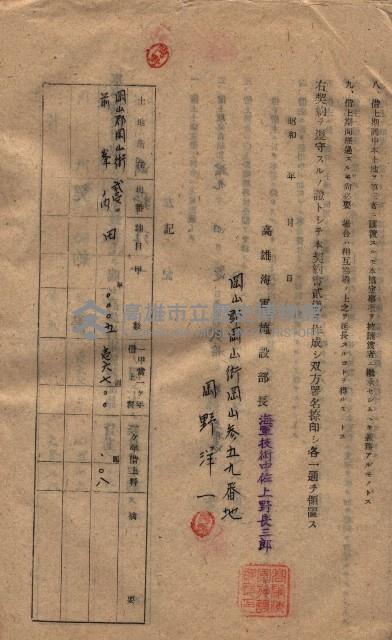 八、借上期間中本土地ヲ第三者ニ譲渡スルモ本協定事項ヲ被譲渡者ニ継承セシムベキ義務アルモノトス
九、借上期間経過スルモ尚必要ノ場合ハ相互協議ノ上之ヲ延長スルコトヲ得ルモノトス
右契約ヲ遵守スルノ証トシテ本契約書弐通ヲ作成シ双方署名捺印シ各一通ヲ領置ス
昭和 年 月 日
高雄海軍施設部長 海軍技術中佐上野長三郎
岡山郡岡山街岡山参五九番地
岡野洋一
土地所在 地番 地目 甲数 甲当一ヶ年借上料 ヶ年借上料 摘要
岡山郡岡山街
前峯 田
高雄市立歷史博物館